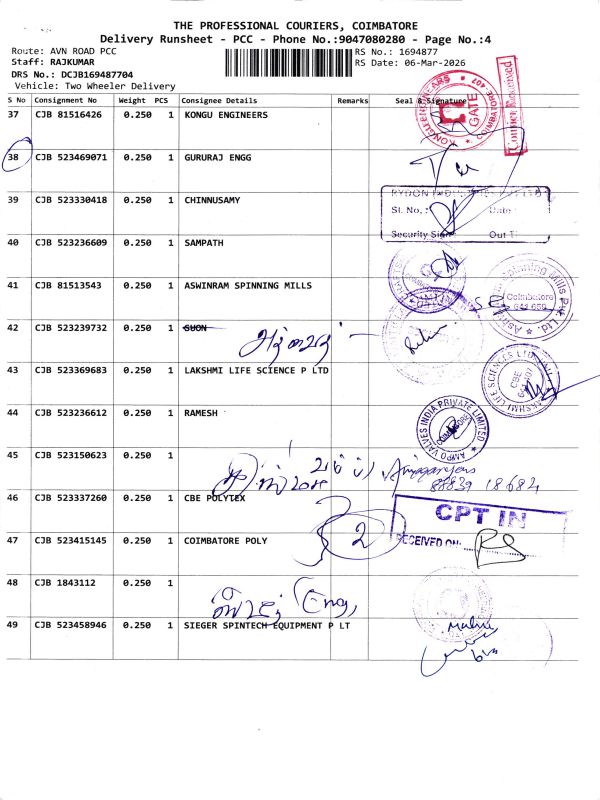 THE PROFESSIONAL COURIERS, COIMBATORE
Delivery Runsheet - PCC - Phone No.:9047080280 - Page No.:4
Route: AVN ROAD PCC
RS No.: 1694877
Staff: RAJKUMAR
RS Date: 06-Mar-2026
DRS No.: DCJB169487704
Vehicle: Two Wheeler Delivery
S No Consignment No Weight PCS Consignee Details Remarks Seal & Signature
37 CJB 81516426 0.250 1 KONGU ENGINEERS
GATE
COIMBATORE
Courier Received
38 CJB 523469071 0.250 1 GURURAJ ENGG
39 CJB 523330418 0.250 1 CHINNUSAMY
Sl. No. : Date :
Security Sign Out Ti
40 CJB 523236609 0.250 1 SAMPATH
41 CJB 81513543 0.250 1 ASWINRAM SPINNING MILLS
Spinning Mills Pvt. Ltd.
Coimbatore
42 CJB 523239732 0.250 1 GUON
43 CJB 523369683 0.250 1 LAKSHMI LIFE SCIENCE P LTD
LAKSHMI LIFE SCIENCES
CBE
44 CJB 523236612 0.250 1 RAMESH
AMPO VALVES INDIA PRIVATE LIMITED
COIMBATORE
45 CJB 523150623 0.250 1
88839 18682
46 CJB 523337260 0.250 1 CBE POLYTEX
2
CPT IN
RECEIVED ON:
47 CJB 523415145 0.250 1 COIMBATORE POLY
48 CJB 1843112 0.250 1
49 CJB 523458946 0.250 1 SIEGER SPINTECH EQUIPMENT P LT